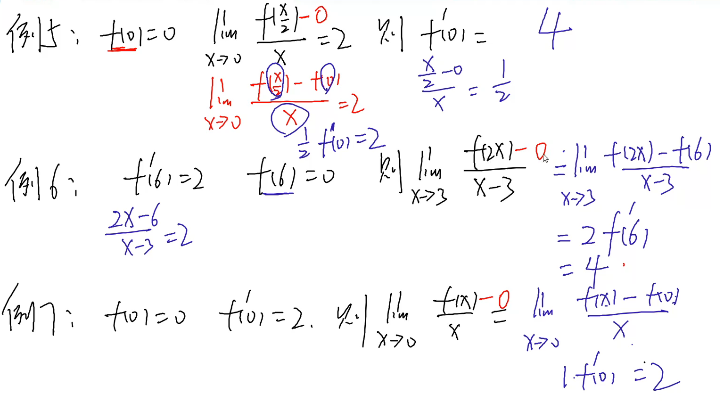 例5: f(0)=0 lim x→0 f(x/2)-0 / x =2 则 f'(0)= 4
lim x→0 f(x/2)-f(0) / x =2 x/2-0 / x = 1/2
1/2 f'(0)=2
例6: f'(6)=2 f(6)=0 则 lim x→3 f(2x)-0 / x-3 = lim x→3 f(2x)-f(6) / x-3
2x-6 / x-3 =2 = 2f'(6)
= 4
例7: f(0)=0 f'(0)=2. 则 lim x→0 f(x)-0 / x = lim x→0 f(x)-f(0) / x
1·f'(0) =2